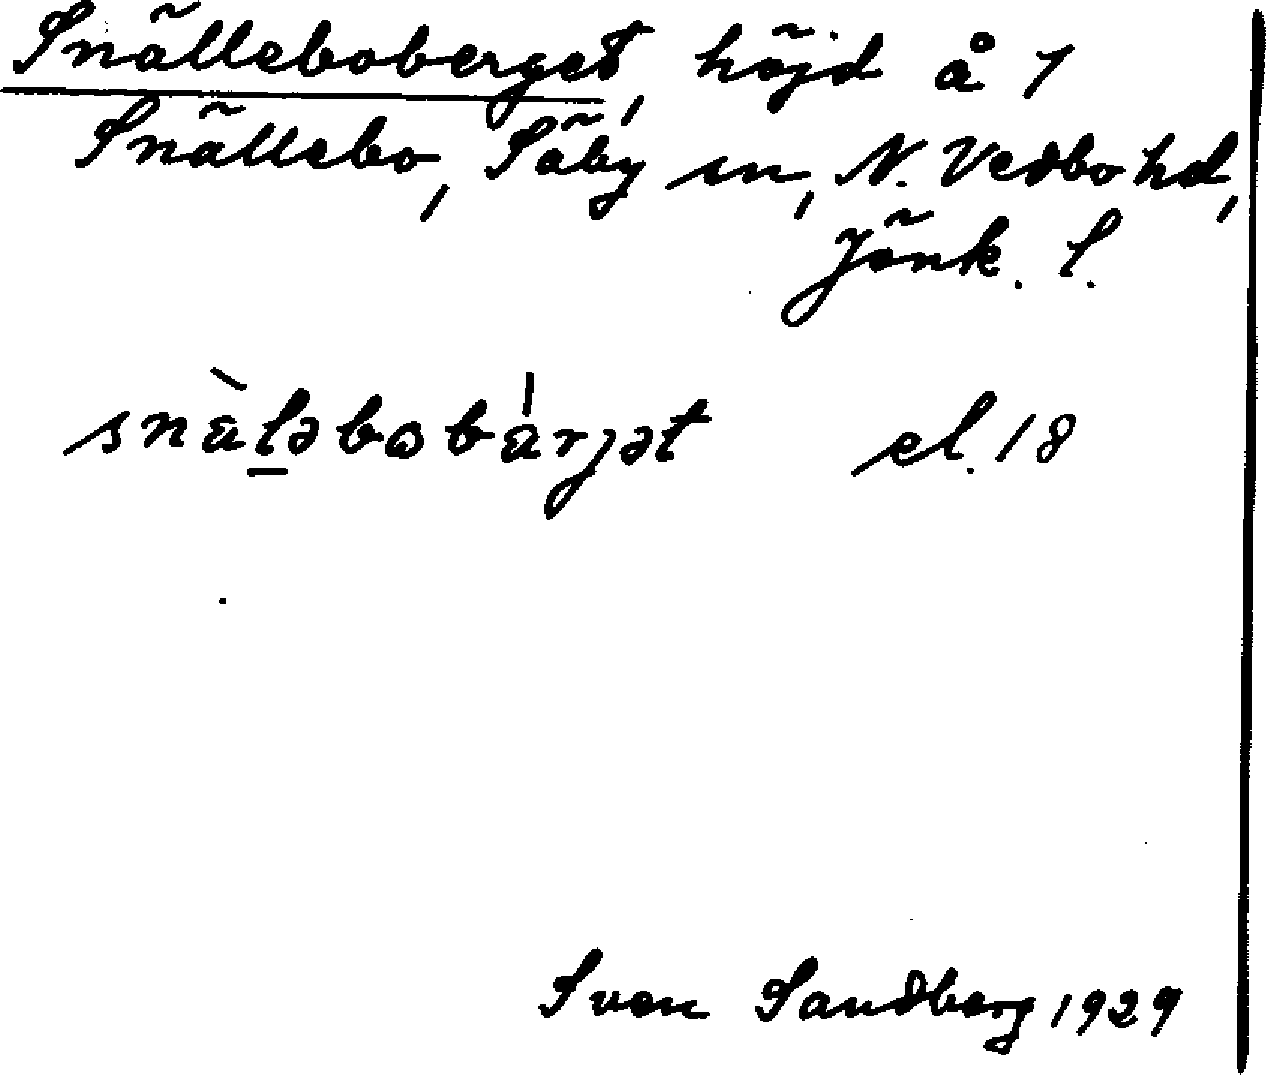 Snälleboberget, höjd å 1
Snällebo, Säby sn, N. Vedbo hd,
Jönk. l.
snàl̲əbωbárjət el. 18
Sven Sandberg 1929